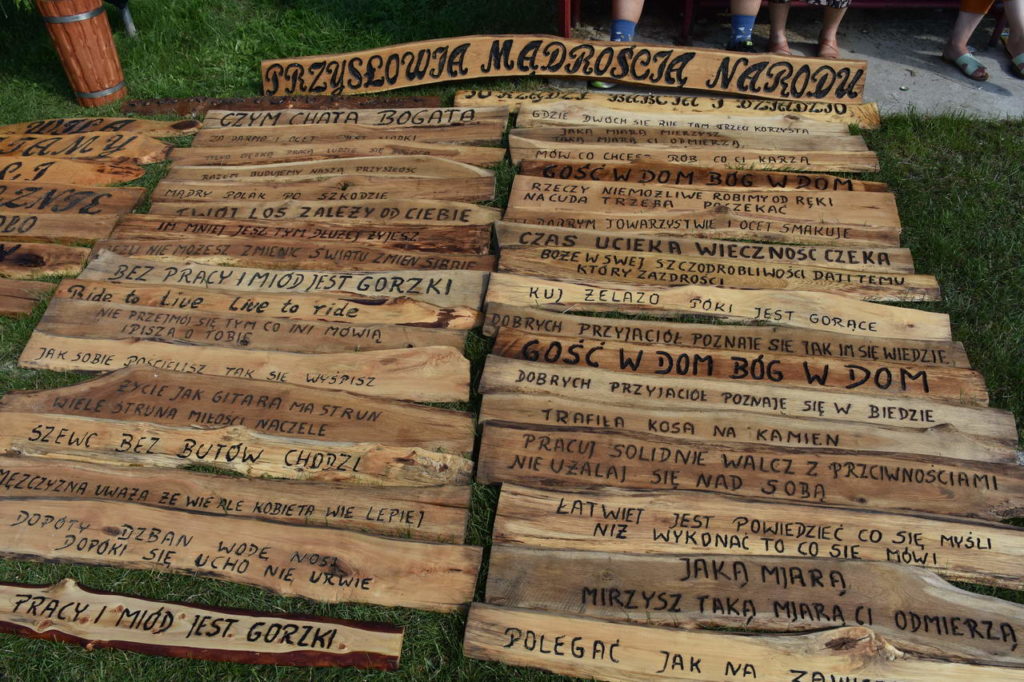 PRZYSŁOWIA MĄDROŚCIĄ NARODU
CZYM CHATA BOGATA
RAZEM BUDUJEMY NASZĄ PRZYSZŁOŚĆ
MĄDRY POLAK PO SZKODZIE
TWÓJ LOS ZALEŻY OD CIEBIE
IM MNIEJ JESZ TYM DŁUŻEJ ŻYJESZ
NIE MOŻESZ ZMIENIĆ ŚWIATU ZMIEŃ SIEBIE
BEZ PRACY I MIÓD JEST GORZKI
Ride to Live Live to ride
NIE PRZEJMÓJ SIĘ TYM CO INI MÓWIĄ
I PISZĄ O TOBIE
JAK SOBIE POŚCIELISZ TAK SIĘ WYŚPISZ
ŻYCIE JAK GITARA MA STRUN
WIELE STRUNA MIŁOŚCI NACZELE
SZEWC BEZ BUTÓW CHODZI
MĘŻCZYZNA UWAŻA ŻE WIE ALE KOBIETA WIE LEPIEJ
DOPÓTY DZBAN WODE NOSI
DOPÓKI SIĘ UCHO NIE URWIE
PRACY I MIÓD JEST GORZKI
GDZIE DWÓCH SIĘ BIJE TAM TRZECI KORZYSTA
JAKĄ MIARĄ MIERZYSZ
TAKĄ MIARĄ CI ODMIERZĄ
MÓW CO CHCESZ RÓB CO CI KARZĄ
GOŚĆ W DOM BÓG W DOM
RZECZY NIEMOŻLIWE ROBIMY OD RĘKI
NA CUDA TRZEBA POCZEKAĆ
W DOBRYM TOWARZYSTWIE I OCET SMAKUJE
CZAS UCIEKA WIECZNOŚĆ CZEKA
BOŻE W SWEJ SZCZODROBLIWOŚCI DAJ TEMU
KTÓRY ZAZDROŚCI
KUJ ŻELAZO PÓKI JEST GORĄCE
DOBRYCH PRZYJACIÓŁ POZNAJE SIĘ JAK IM SIĘ WIEDZIE
GOŚĆ W DOM BÓG W DOM
DOBRYCH PRZYJACIÓŁ POZNAJE SIĘ W BIEDZIE
TRAFIŁA KOSA NA KAMIEŃ
PRACUJ SOLIDNIE WALCZ Z PRZCIWNOŚCIAMI
NIE UŻALAJ SIĘ NAD SOBĄ
ŁATWIEJ JEST POWIEDZIEĆ CO SIĘ MYŚLI
NIŻ WYKONAĆ TO CO SIĘ MÓWI
JAKĄ MJARĄ
MIRZYSZ TAKĄ MJARĄ CI ODMIERZĄ
POLEGAĆ JAK NA